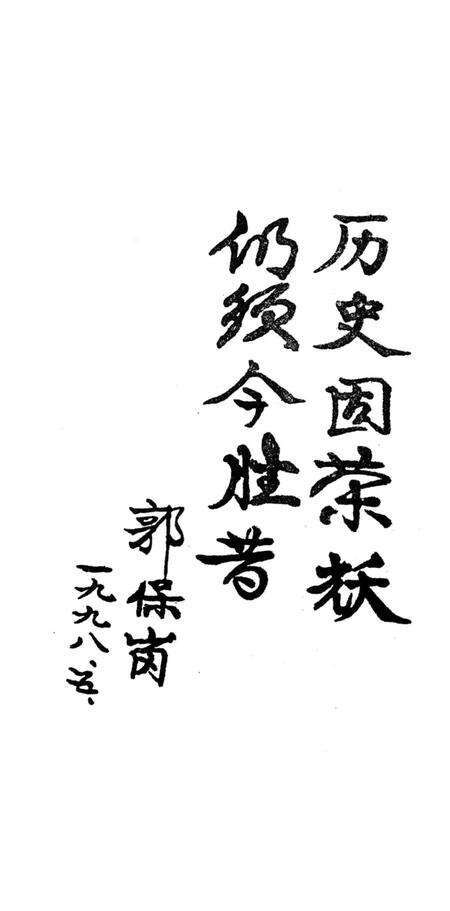 历史固荣耀
仍须今胜昔
郭保岗
一九九八、五、